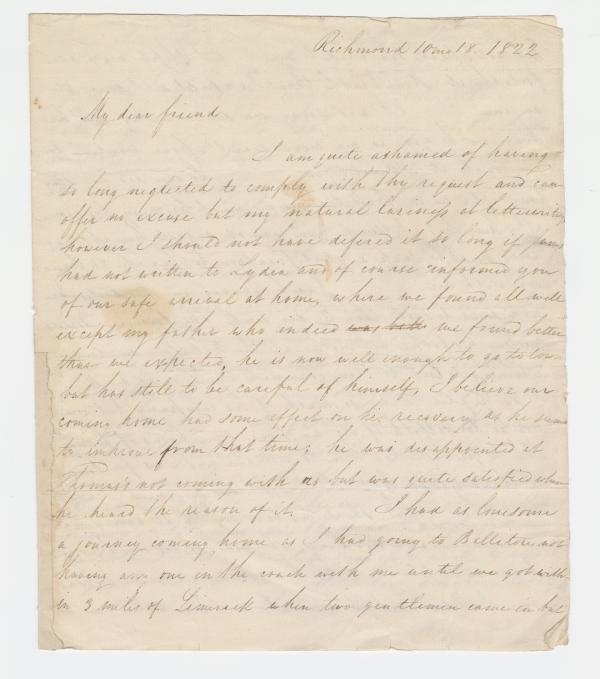 Richmond 10mo 18 1822
My dear friend
I am quite ashamed of having
so long neglected to comply with thy request and can
offer no excuse but my natural laziness at letterwriting
however I should not have defered it so long if
had not written to Lydia and of course informed you
of our safe arrival at home, where we found all well
except my father who indeed was both we found better
than we expected, he is now well enough to go to town
but has still to be careful of himself, I believe our
coming home had some effect on his recovery as he seems
to improve from that time; he was disappointed at
Thomas's not coming with us but was quite satisfied when
he heard the reason of it. I had as lonesome
a journey coming home as I had going to Ballitore not
having any one in the coach with me until we got with-
in 3 miles of Limerick when two gentlemen came in but